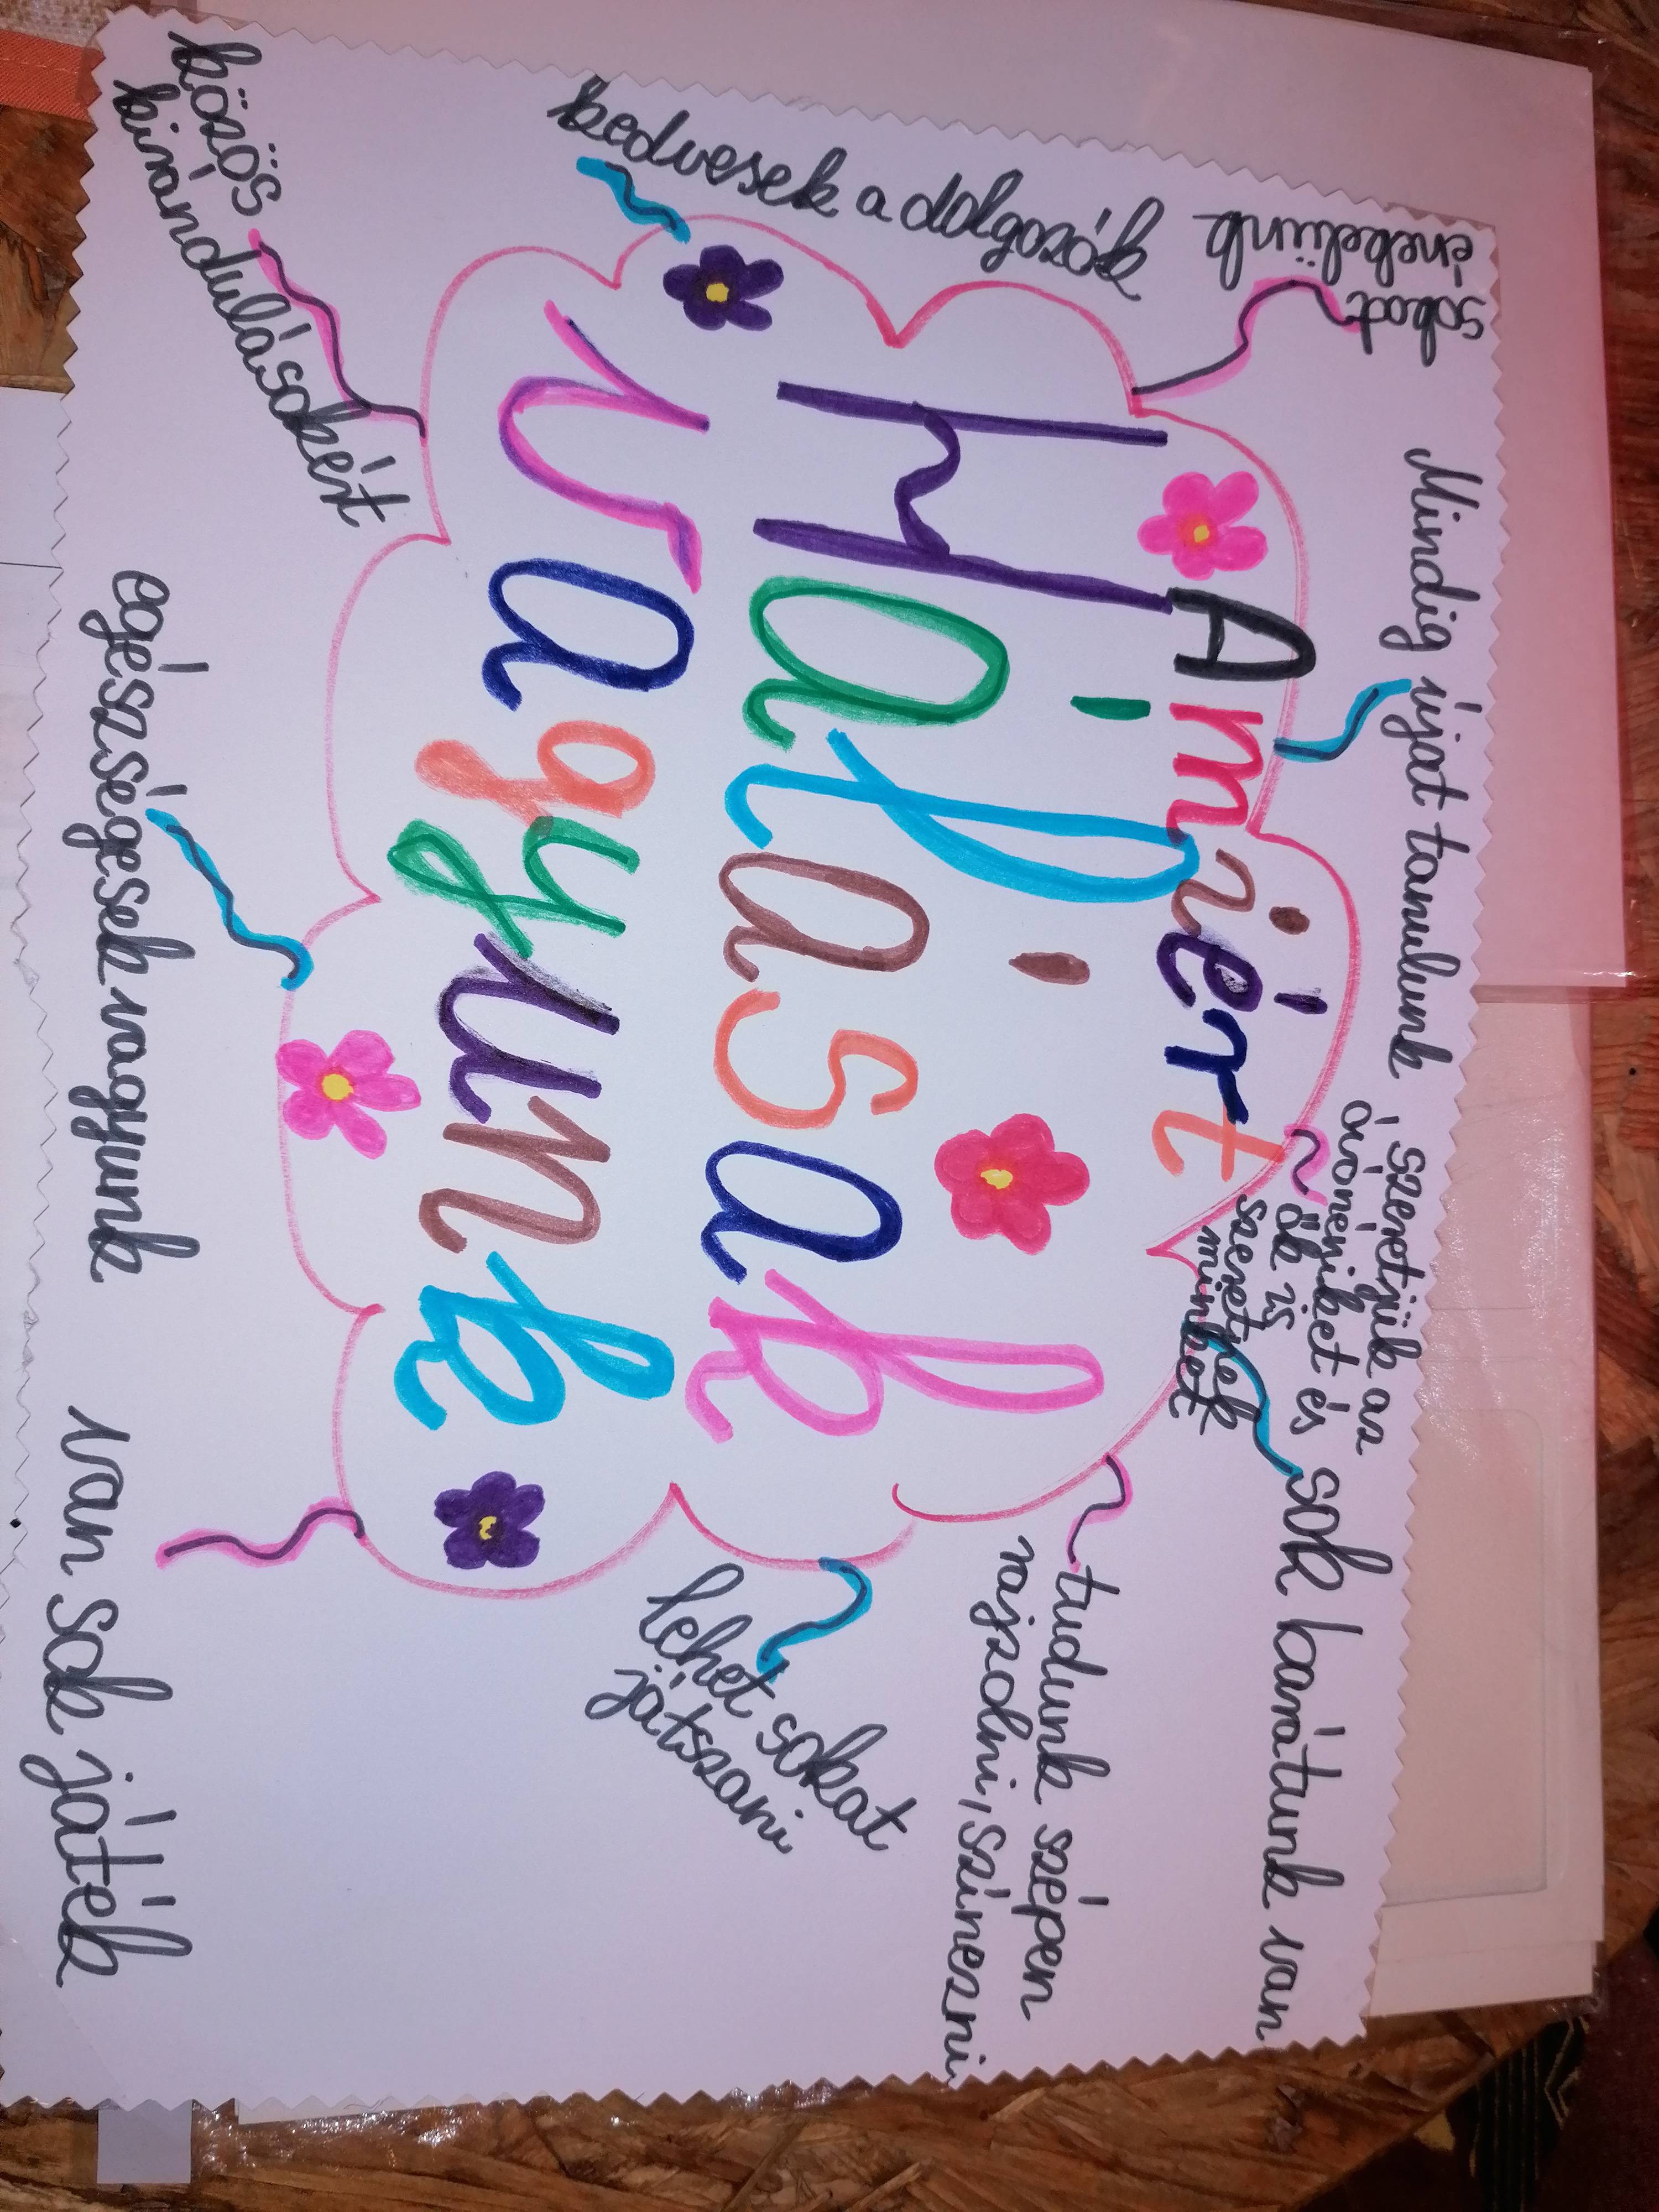 Amiért
Hálásak
vagyunk
Mindig újat tanulunk
szeretjük az
óvónénjiket és
ők is
szeretnek
minket
sok barátunk van
tudunk szépen
rajzolni, színezni
lehet sokat
játszani
van sok játék
egészségesek vagyunk
közös
kirándulásokért
kedvesek a dolgozók
sokat
énekelünk